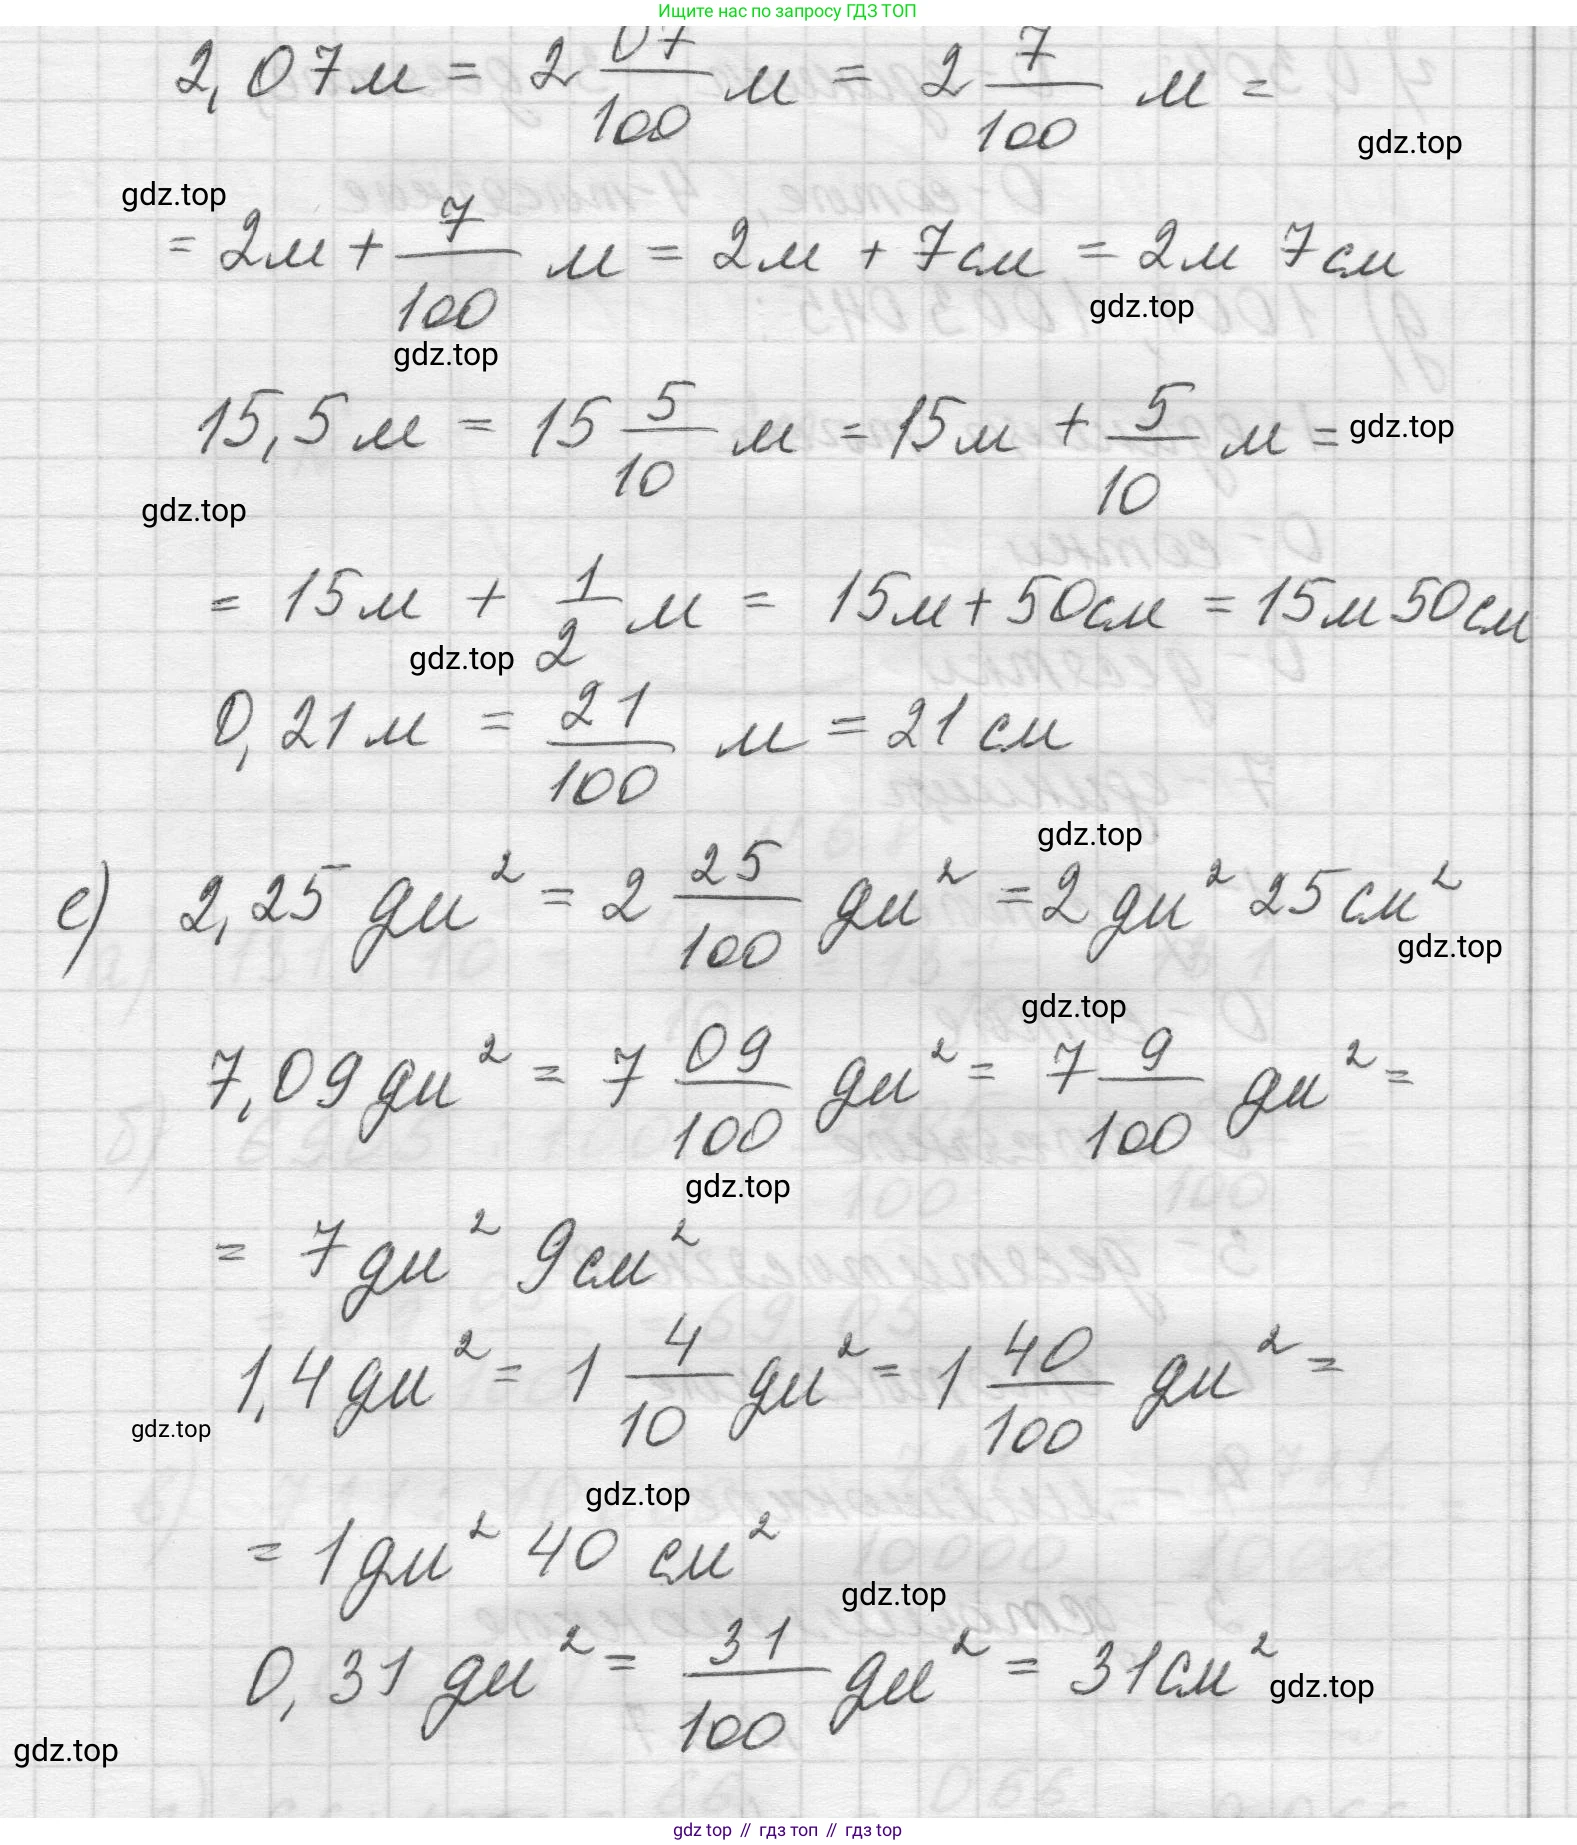 Ищите нас по запросу ГДЗ ТОП
2,07м = 2 07/100 м = 2 7/100 м =
gdz.top
gdz.top
= 2м + 7/100 м = 2м + 7см = 2м 7см
gdz.top
gdz.top
15,5м = 15 5/10 м = 15м + 5/10 м =
gdz.top
gdz.top
= 15м + 1/2 м = 15м + 50см = 15м 50см
gdz.top
0,21м = 21/100 м = 21 см
gdz.top
е) 2,25 дм² = 2 25/100 дм² = 2 дм² 25 см²
gdz.top
gdz.top
7,09 дм² = 7 09/100 дм² = 7 9/100 дм² =
gdz.top
= 7 дм² 9 см²
1,4 дм² = 1 4/10 дм² = 1 40/100 дм² =
gdz.top
gdz.top
= 1 дм² 40 см²
gdz.top
0,31 дм² = 31/100 дм² = 31 см²
gdz.top
gdz.top
gdz top // гдз топ // гдз top